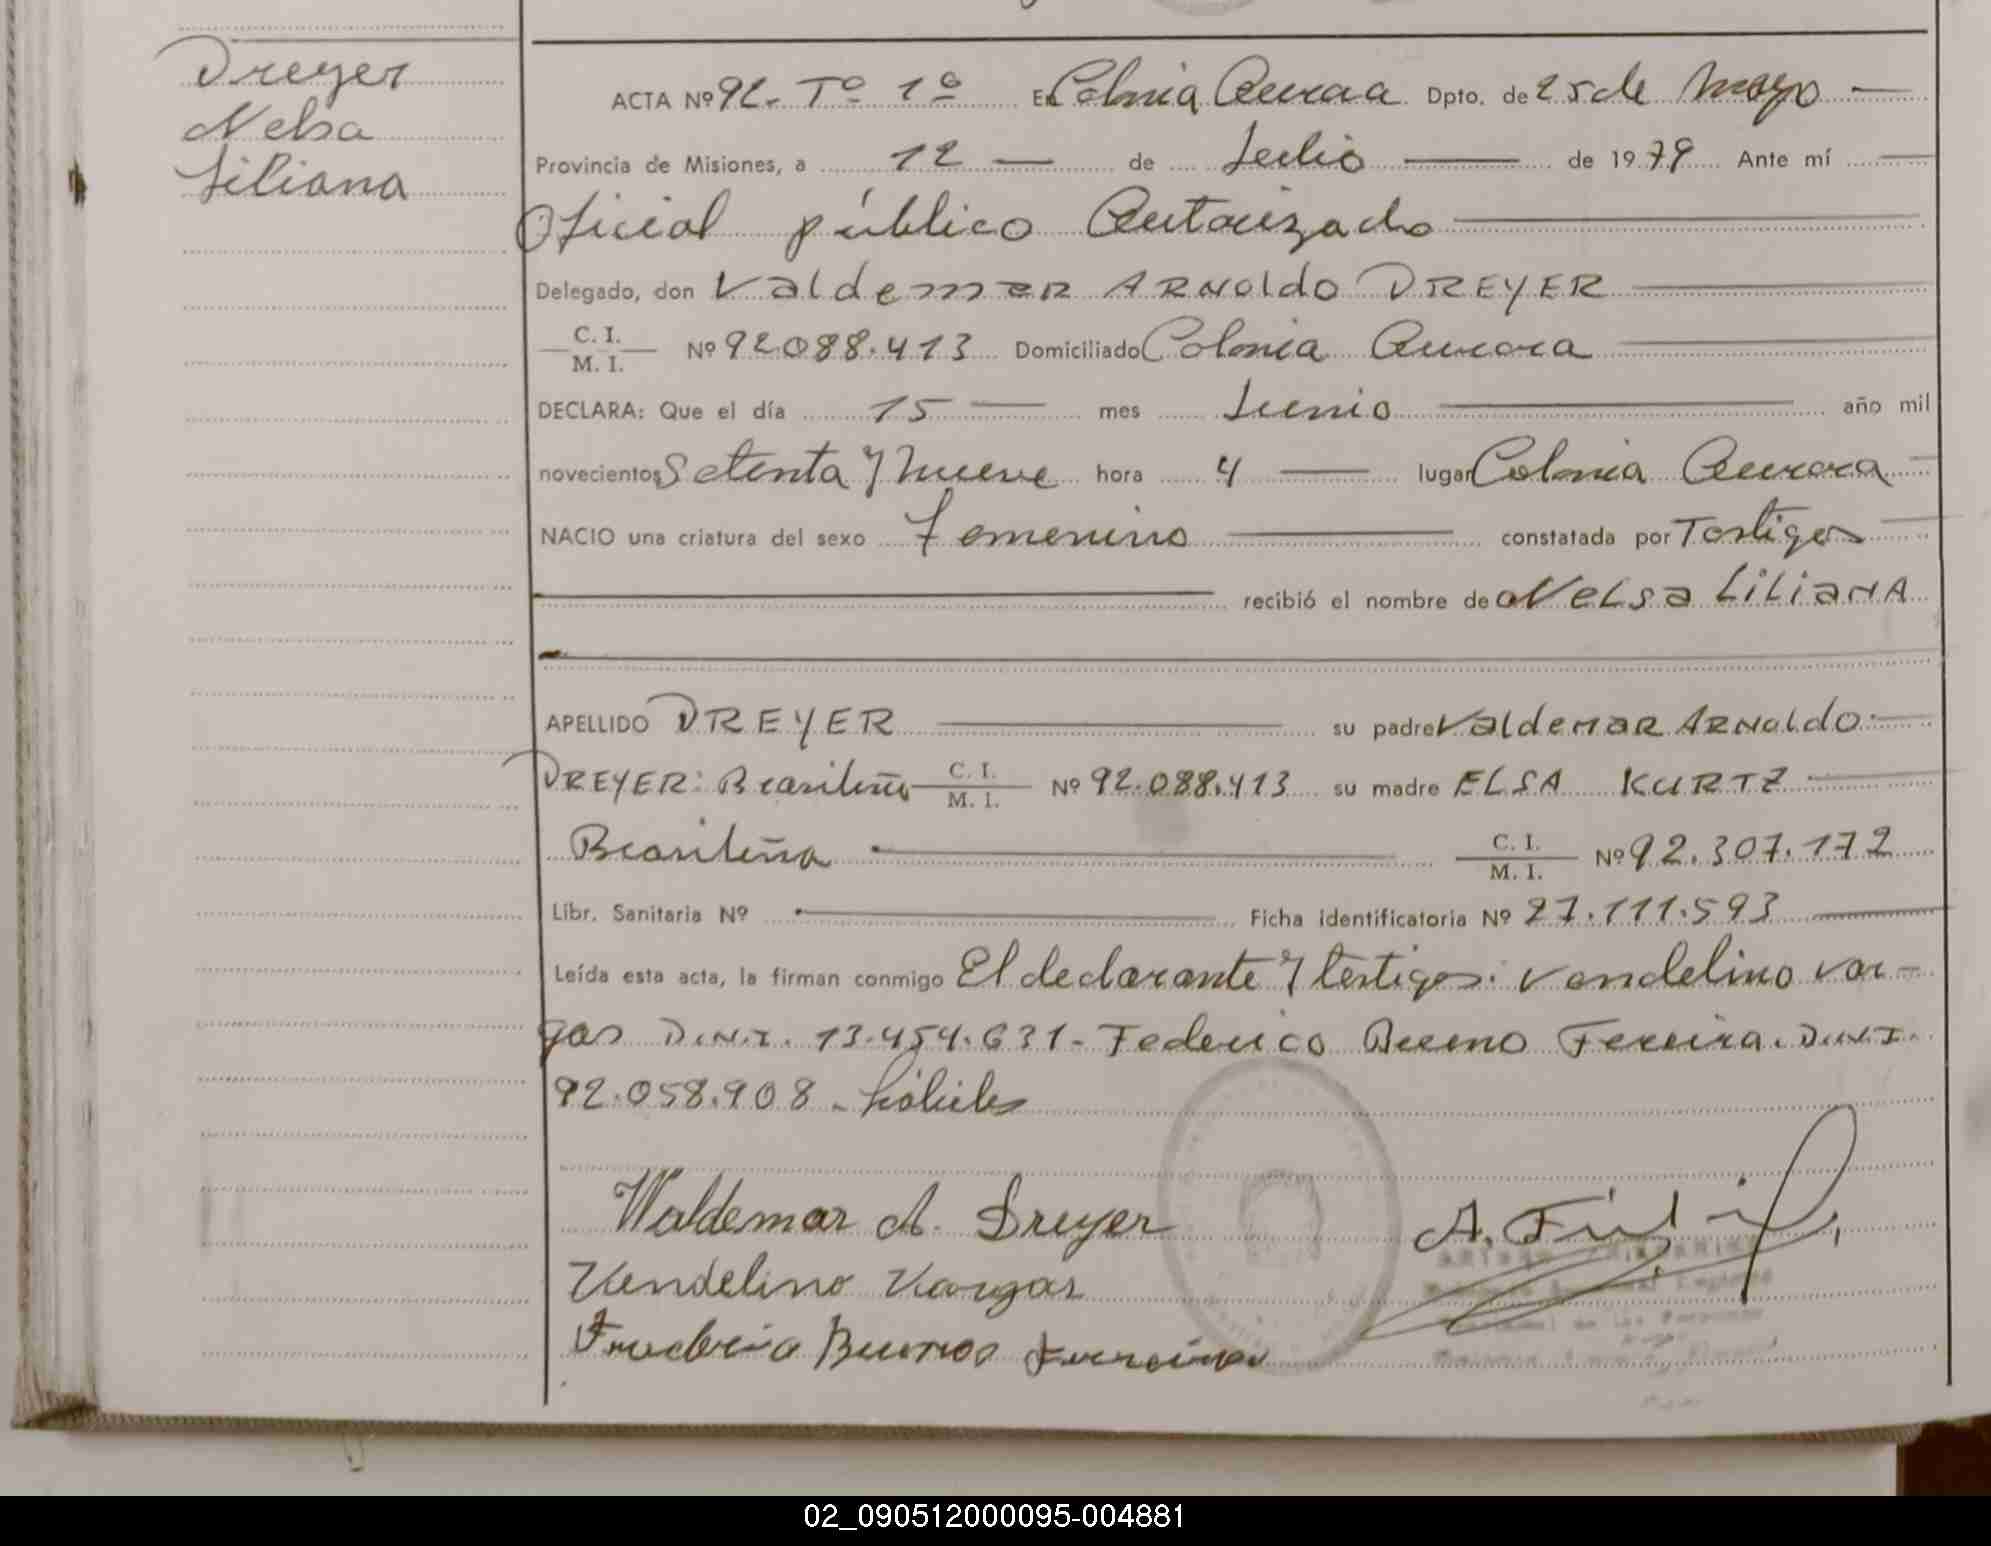 Dreyer
Nelsa
Liliana
ACTA Nº 92 - Tº 1º En Colonia Aurora Dpto. de 25 de Mayo
Provincia de Misiones, a 12 de Julio de 1979 Ante mí
Oficial público Autorizado
Delegado, don Valdemar ARNoldo DREYER
C. I. / M. I. Nº 92088.413 Domiciliado Colonia Aurora
DECLARA: Que el día 15 mes Junio año mil
novecientos Setenta y Nueve hora 4 lugar Colonia Aurora
NACIO una criatura del sexo Femenino constatada por Testigos
recibió el nombre de NELSa LiLiaNA
APELLIDO DREYER su padre ValdeMAR ARNoLdo
DREYER: Brasileño C. I. / M. I. Nº 92.088.413 su madre ELSA KURTZ
Brasileña C. I. / M. I. Nº 92.307.172
Libr. Sanitaria Nº Ficha identificatoria Nº 27.111.593
Leída esta acta, la firman conmigo El declarante y testigos: Vendelino Var-
gas D.N.I. 13.454.631 - Federico Bueno Ferreira. D.N.I.
92.058.908 - hábiles
Waldemar A. Dreyer
Vendelino Vargas
Bueno Ferreira
02_090512000095-004881